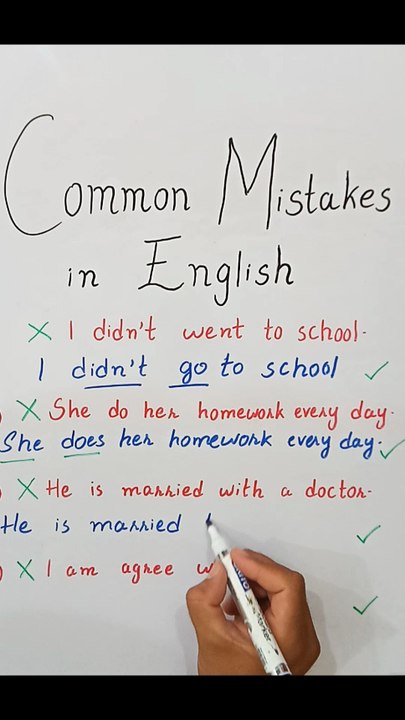 Common Mistakes
in English
✗ I didn't went to school.
I didn't go to school ✓
) ✗ She do her homework every day.
She does her homework every day. ✓
) ✗ He is married with a doctor.
He is married ✓
) ✗ I am agree
✓